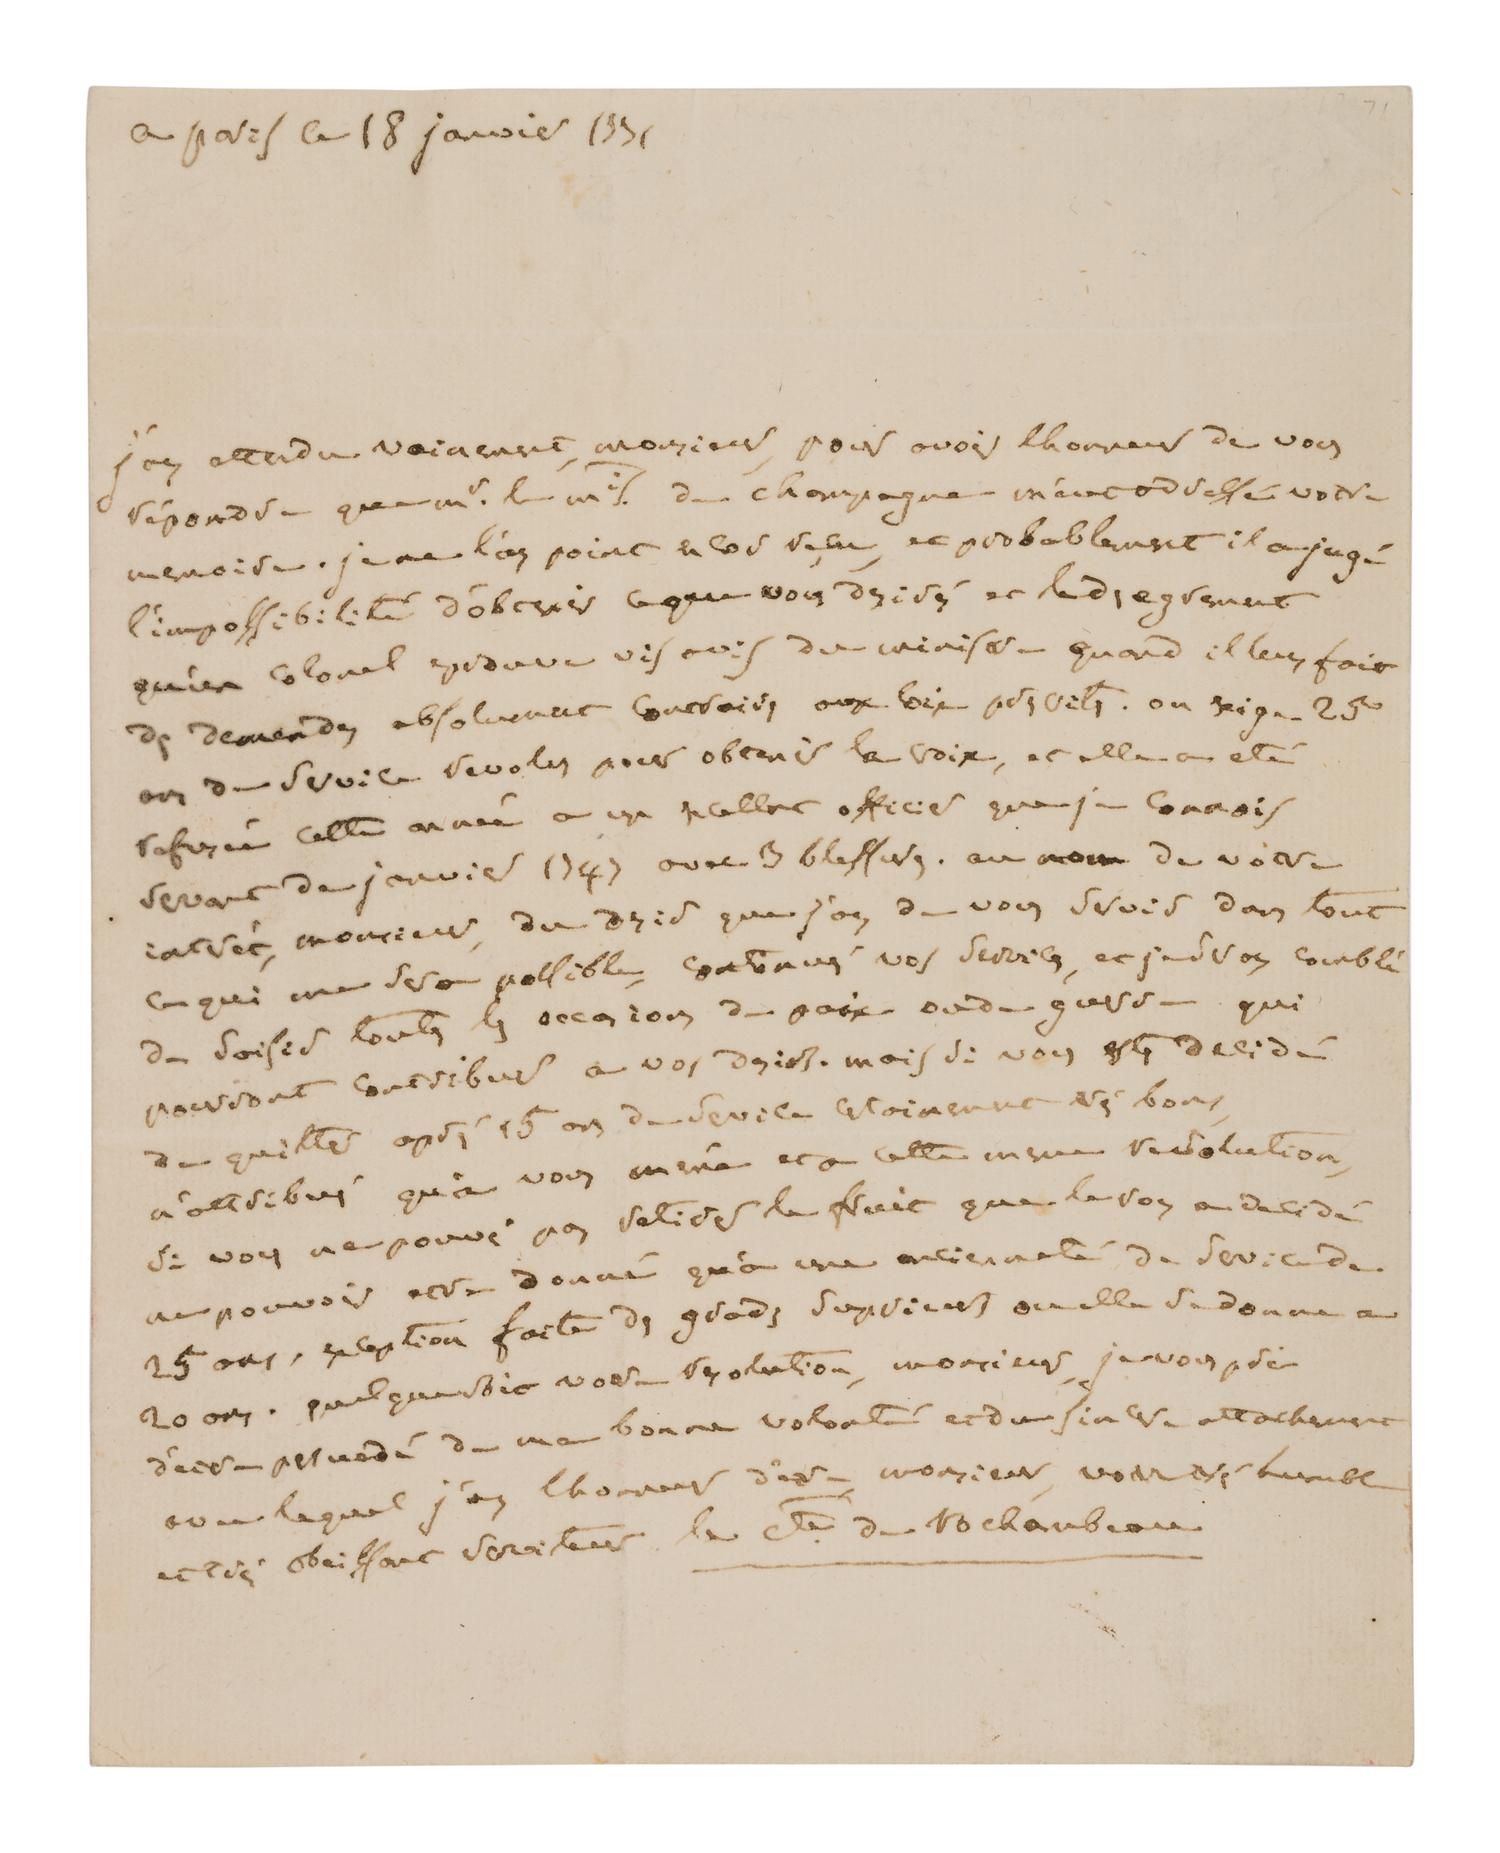 a paris ce 18 janvier 1771
j'ay attendu vainement, monsieur, pour avoir lhonneur de vous
répondre que mr. le mis. de champagne m'eut adressé votre
memoire. je ne l'ay point encor reçu, et probablement il a jugé
l'impossibilité d'obtenir ce que vous desirés et le desagrement
qu'un colonel eprouve vis avis du ministre quand il leur fait
des demandes absolument contraires aux loix prescrites. on exige 25
ans de service revolus pour obtenir la croix, et elle a eté
refusée cette année a un excellent officier que je connois
servant de janvier 1747 avec 3 blessures. au nom de votre
interêt, monsieur, du desir que j'ay de vous servir dans tout
ce qui me sera possible, continués vos services, et je seray comblé
de saisir toutes les occasions de paix ou de guerre qui
pourront contribuer a vos desirs. mais si vous estes decidé
de quitter aprés 15 ans de service certainement trés bons,
n'attribués qu'a vous même et a cette meme resolution,
si vous ne pouvés pas retirer le fruit que le roy a decidé
ne pouvoir etre donné qu'a une ancienneté de service de
25 ans, exception faite des grades superieurs ou elle se donne a
20 ans. quelque soit votre resolution, monsieur, je vous prie
d'etre persuadé de ma bonne volonté et du sincere attachement
avec lequel j'ay lhonneur d'etre, monsieur, votre trés humble
et trés obeissant serviteur le cte. de Rochambeau